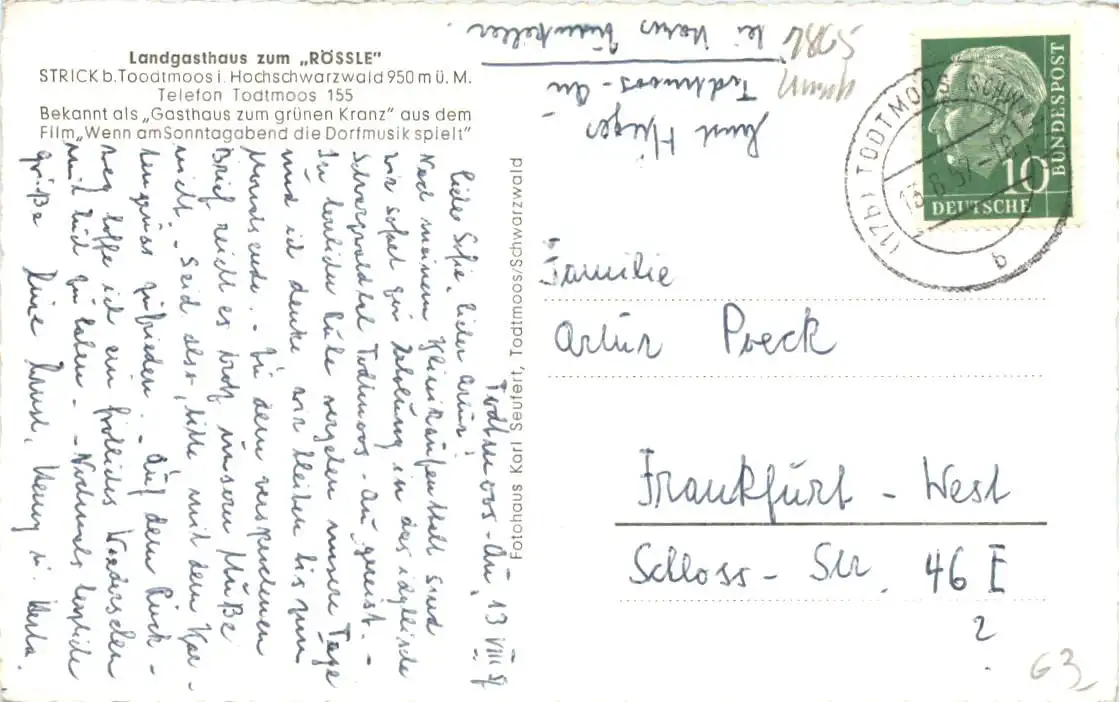 Landgasthaus zum „RÖSSLE"
STRICK b. Toodtmoos i. Hochschwarzwald 950 m ü. M.
Telefon Todtmoos 155
Bekannt als „Gasthaus zum grünen Kranz" aus dem
Film „Wenn am Sonntagabend die Dorfmusik spielt"
Ernst
Todtmoos-Au
bei
Todtmoos-Au, 13 VIII 57
Liebe Sofie, lieber Artur!
Nach meinem Klinikaufenthalt sind
wir sofort zur Erholung in das idyllische
Schwarzwaldtal Todtmoos-Au gereist. -
In herrlicher Ruhe vergehen unsere Tage
und ich denke wir bleiben bis zum
Monatsende. - Zu dem versprochenen
Brief reicht es trotz unserer Muße
nicht. - Seid also, bitte mit dem Kar-
tengruss zufrieden. - Auf dem Rück-
weg hoffe ich ein fröhliches Wiedersehen
mit Euch zu haben. - Nochmals herzliche
Grüße Eure Ernst, u.
Fotohaus Karl Seufert, Todtmoos/Schwarzwald
(17b) TODTMOOS (SCHWA
13.8.57
b
10
DEUTSCHE
BUNDESPOST
Familie
Artur Poeck
Frankfurt - West
Schloss - Str. 46 I
2
63